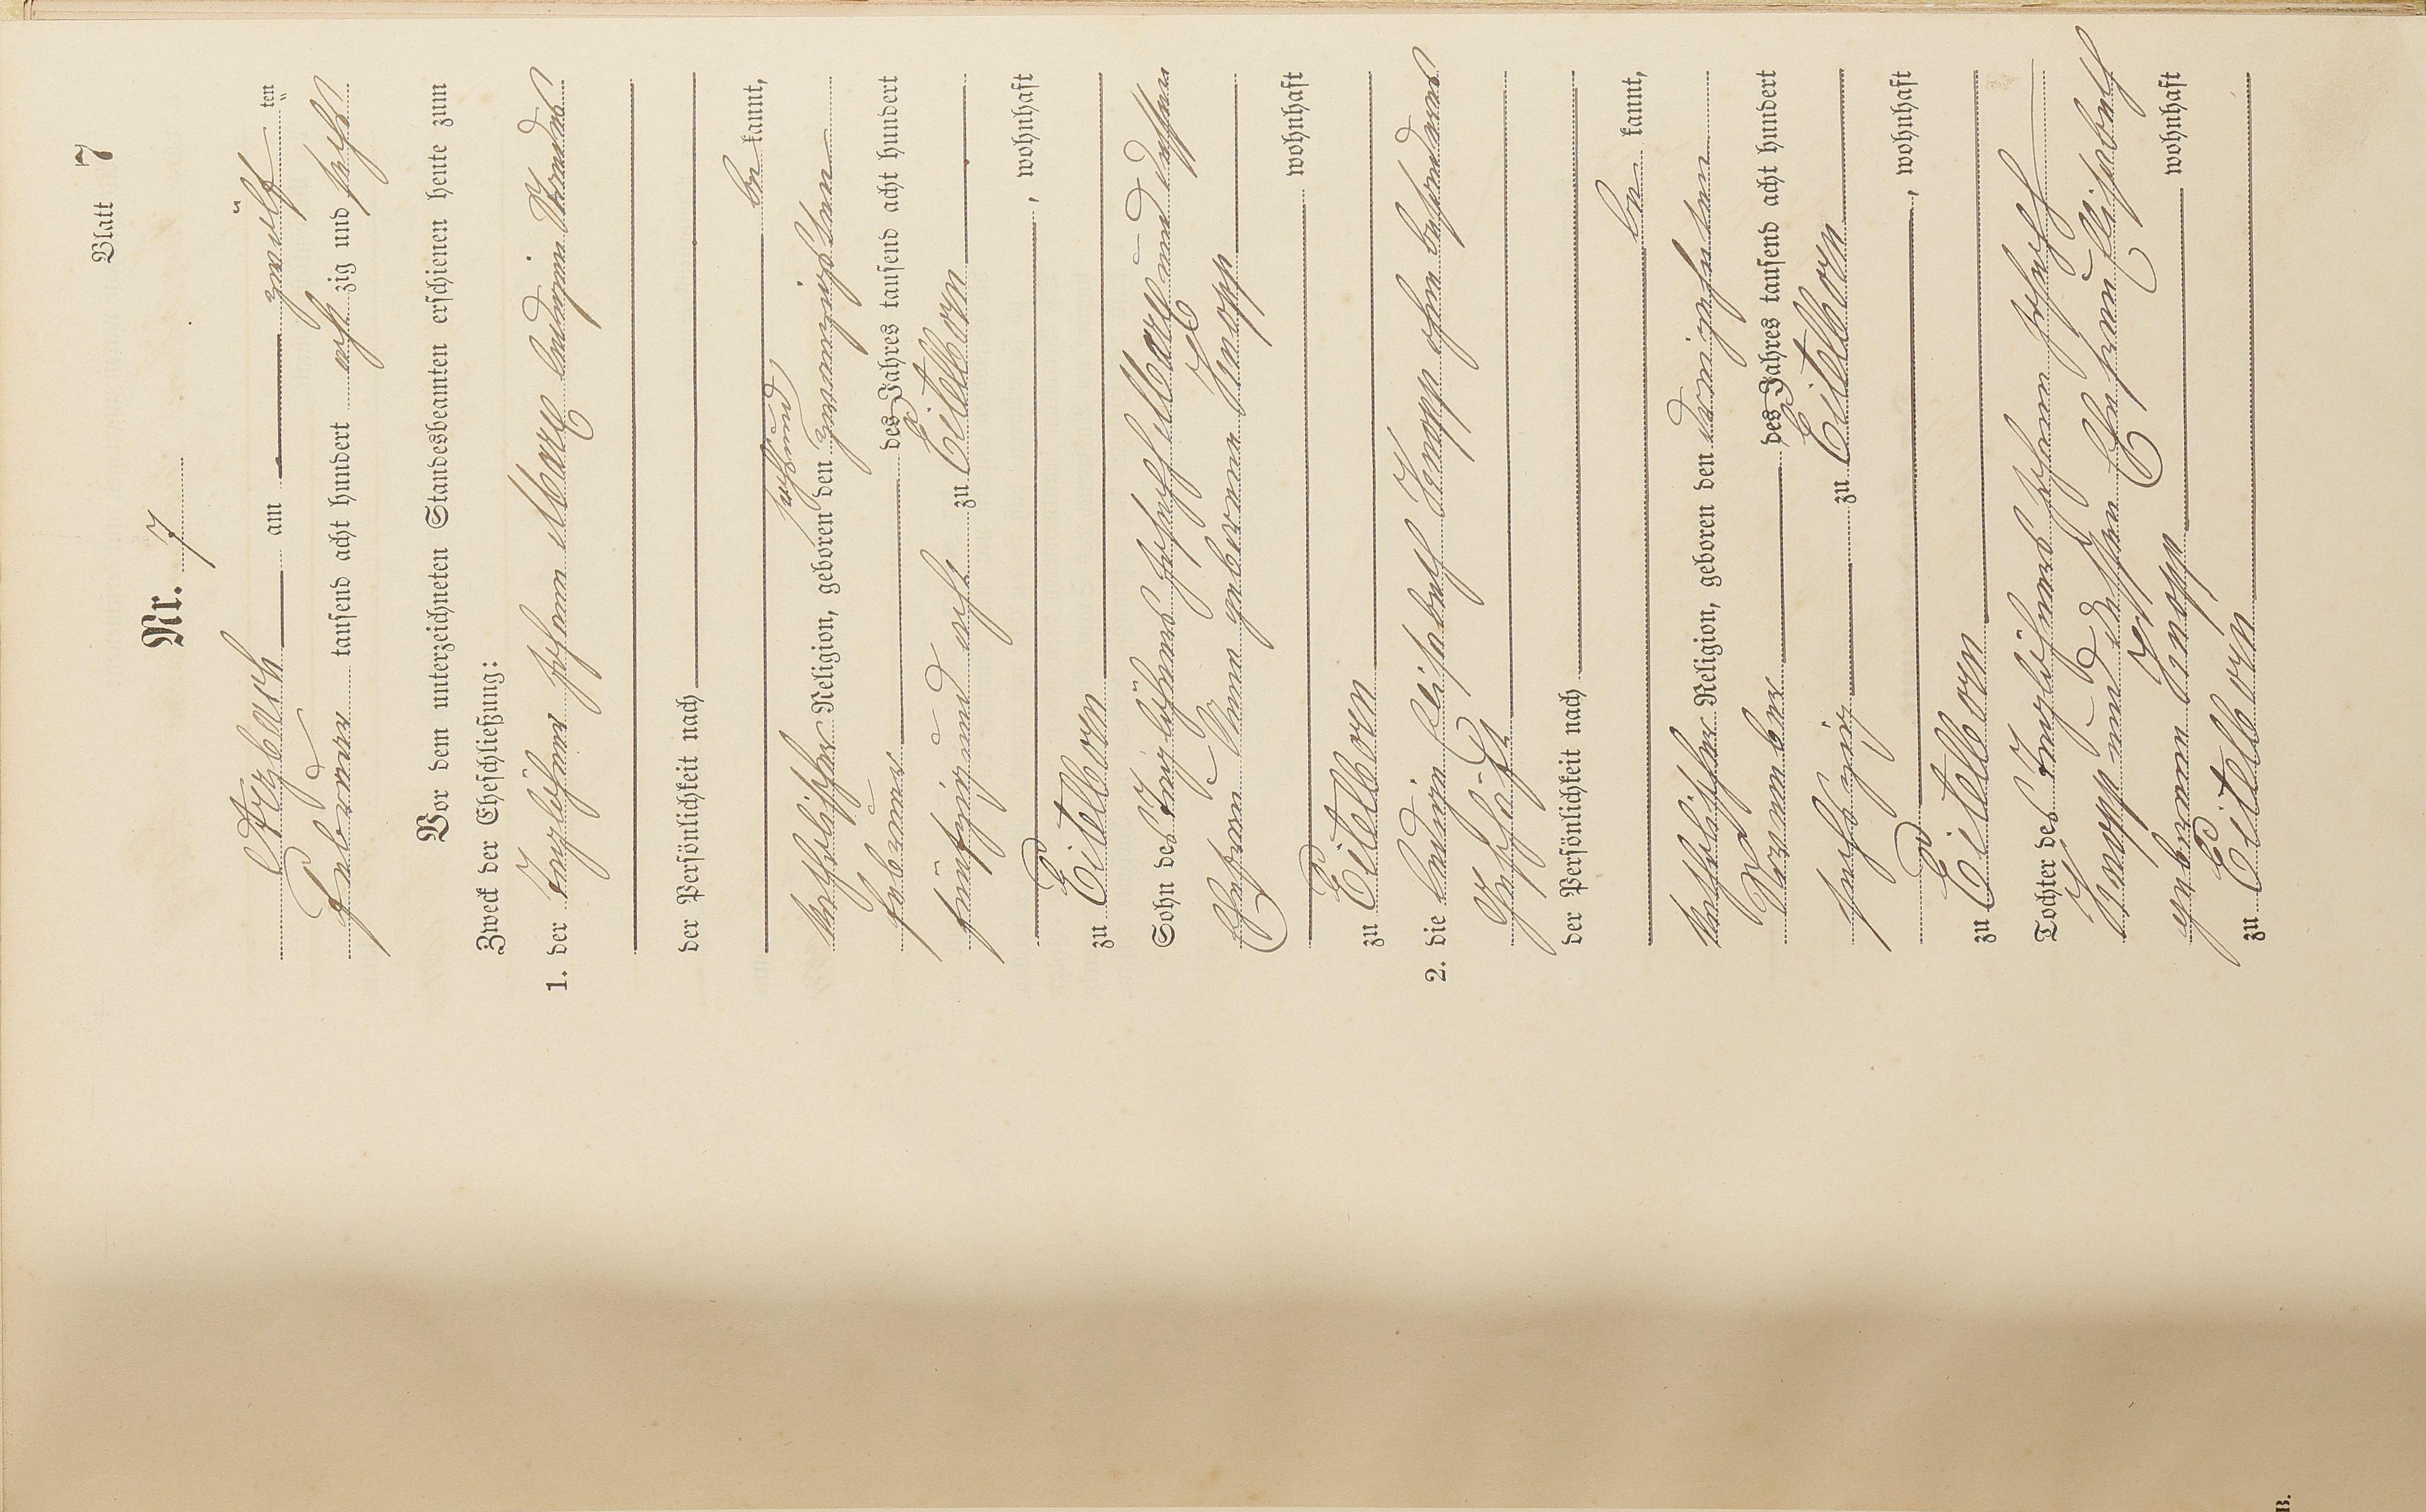 Blatt 7
Nr. 7
Arzbach am zwölf ten
Februar tausend acht hundert acht zig und sechs
Vor dem unterzeichneten Standesbeamten erschienen heute zum
Zweck der Eheschließung:
1. der Taglöhner Johann Marx ledigen Standes
der Persönlichkeit nach
be kannt,
sechsund
katholischer Religion, geboren den zwanzigsten
Februar des Jahres tausend acht hundert
fünfzig und acht zu Eitelborn
, wohnhaft
zu Eitelborn
Sohn des Taglöhners Joseph Marx und dessen
Ehefrau Anna geborene Knopp
wohnhaft
zu Eitelborn
2. die ledige Elisabeth Knopp ohne besonderes
Geschäft
der Persönlichkeit nach
be kannt,
katholischer Religion, geboren den dreizehnten
November des Jahres tausend acht hundert
sechszig zu Eitelborn
, wohnhaft
zu Eitelborn
Tochter des Taglöhners Johann Joseph
Knopp und dessen Ehefrau Elisabeth
geborene Knopp wohnhaft
zu Eitelborn
B.